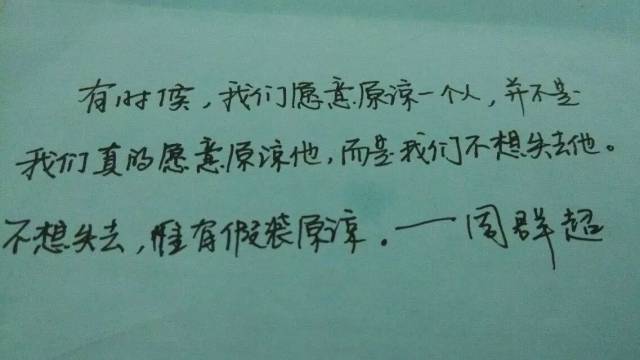 有时候，我们愿意原谅一个人，并不是
我们真的愿意原谅他，而是我们不想失去他。
不想失去，唯有假装原谅。——周群超